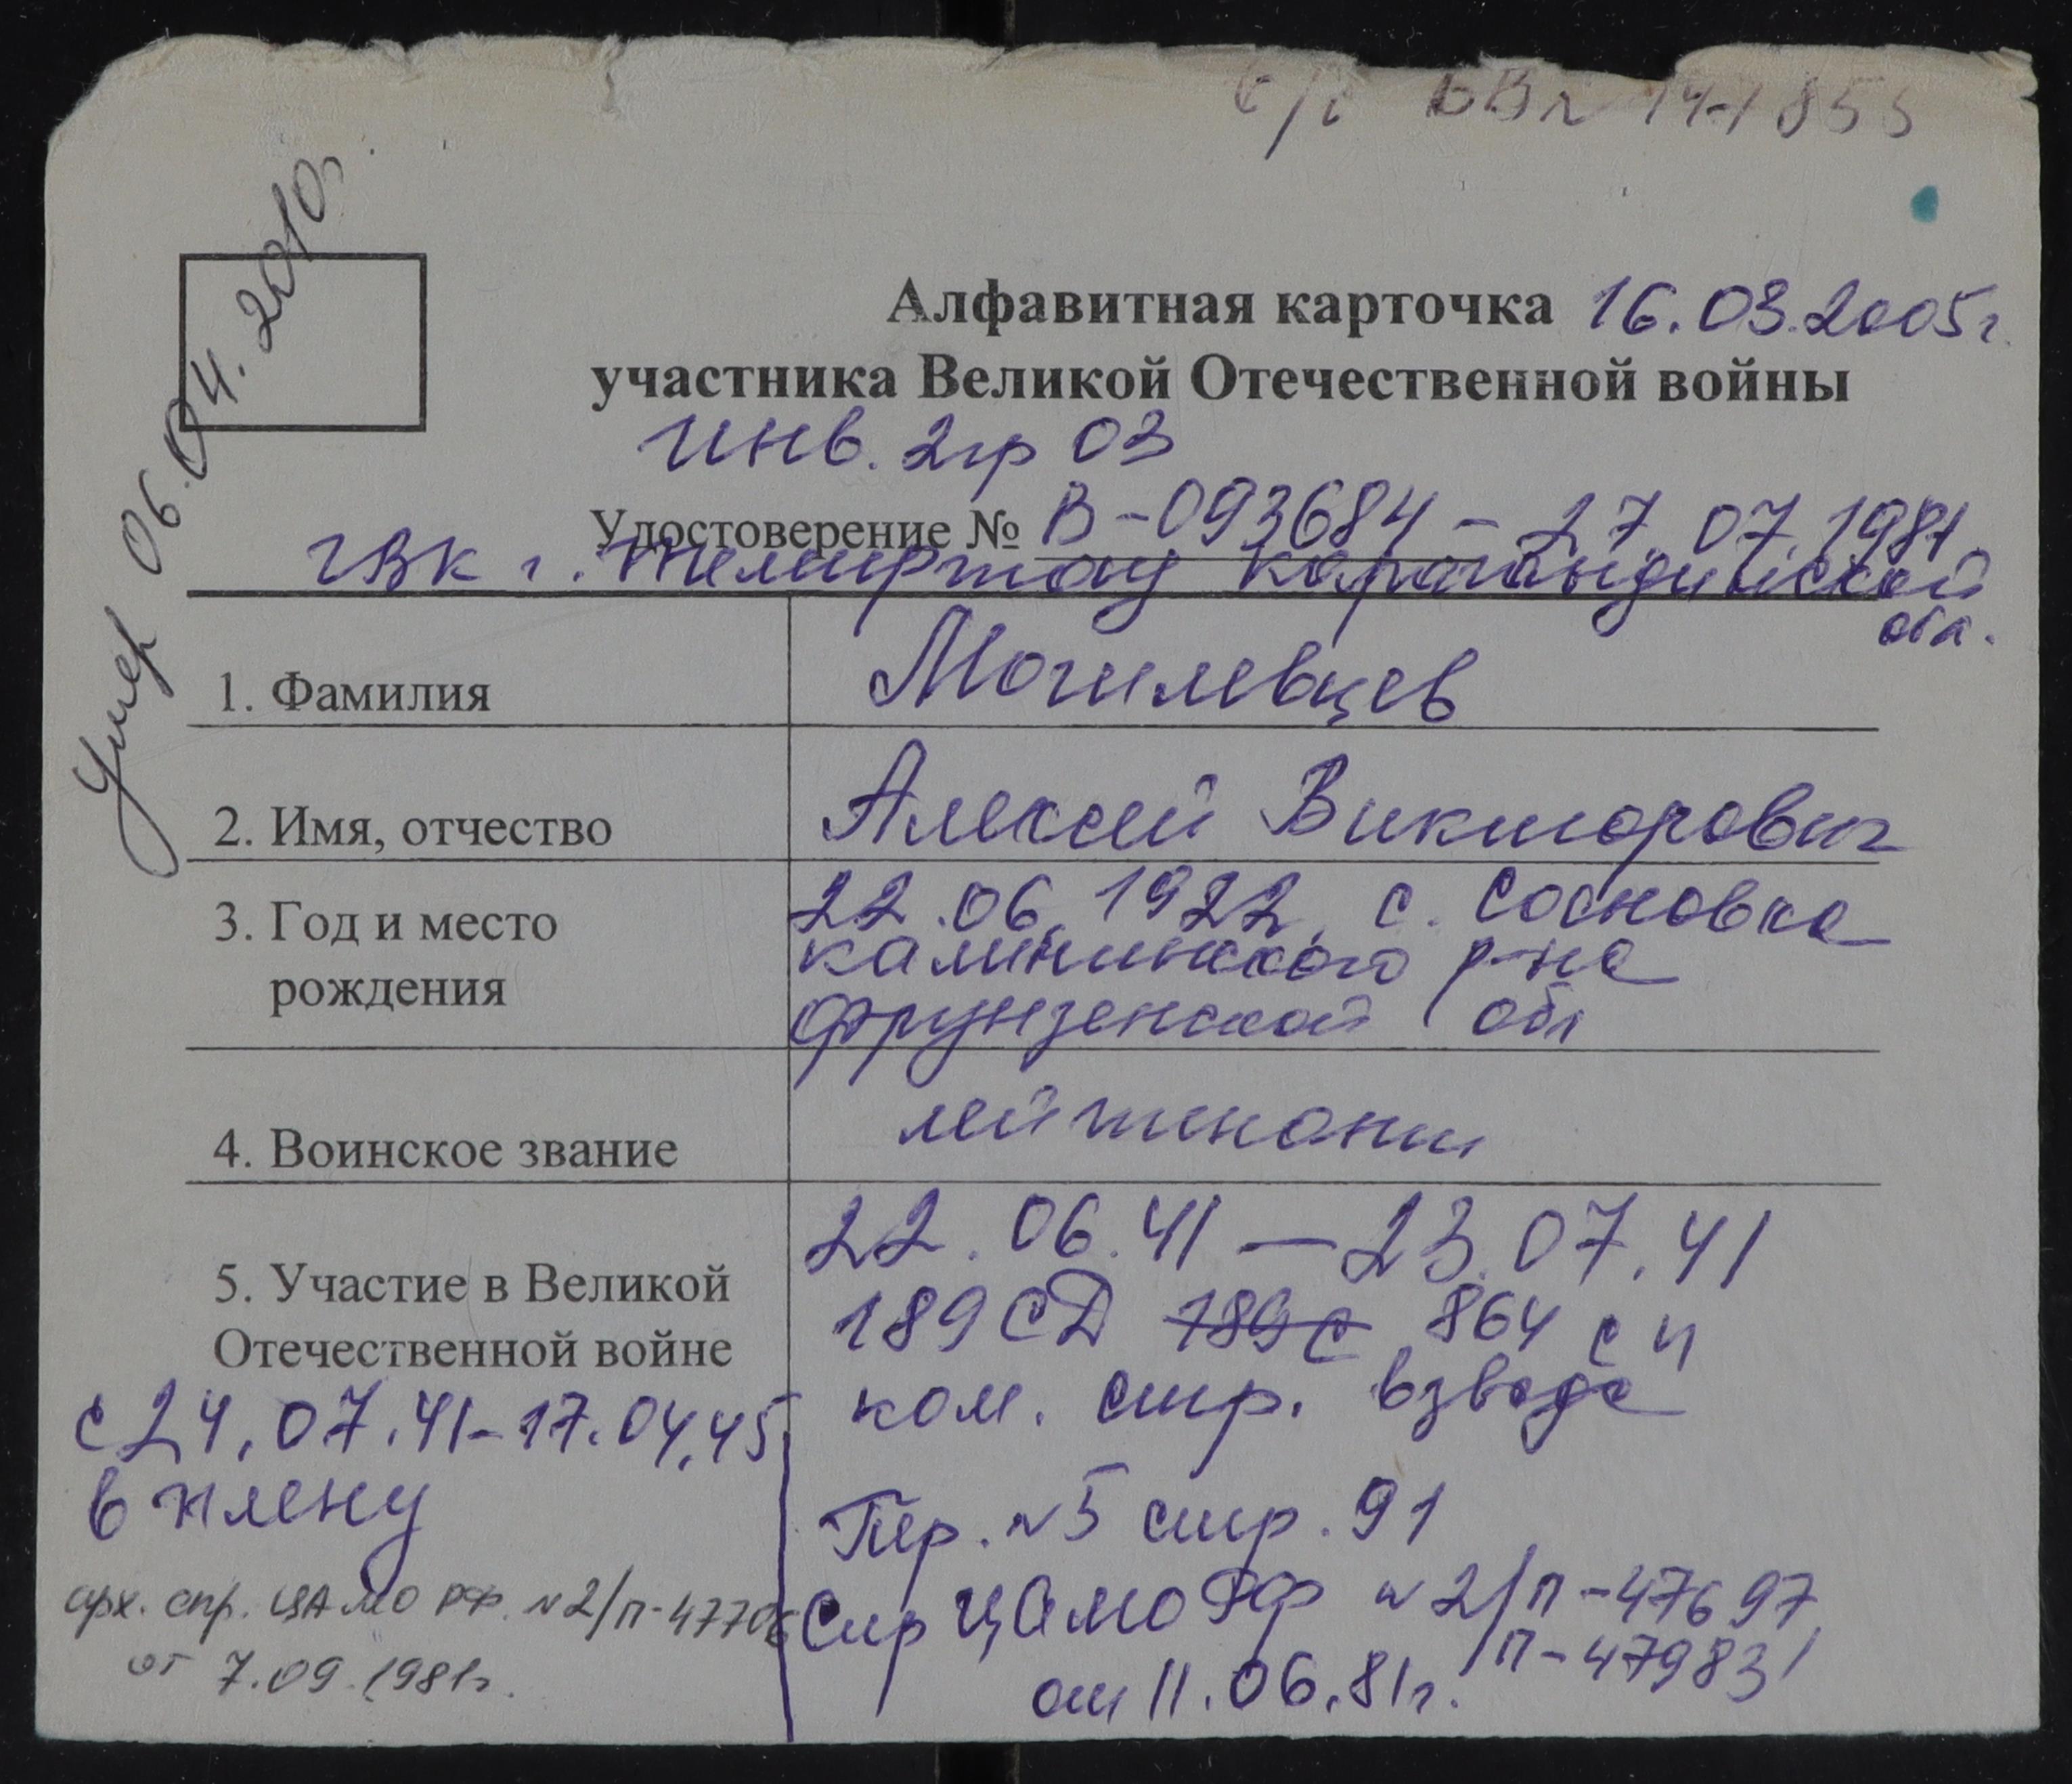 с/с ВВл 14-1855
Умер 06.04.2010г.
Алфавитная карточка 16.03.2005г.
участника Великой Отечественной войны
инв. 2гр ОЗ
Удостоверение № В-093684 - 27.07.1981
ГВК г. Темиртау Карагандийской
обл.
1. Фамилия Могилевцев
2. Имя, отчество Алексей Викторович
3. Год и место рождения 22.06.1922, с. Сосновка
калининского р-на
фрунзенской обл
4. Воинское звание лейтенант
5. Участие в Великой
Отечественной войне
22.06.41 — 23.07.41
189 СД 189 с 864 сп
ком. стр. взвода
с 24.07.41-17.04.45
в плену
Пер. №5 стр. 91
Спр ЦАМО РФ №2/п-47697
/п-47983/
от 11.06.81г.
арх. спр. ЦАМО РФ. №2/п-47706
от 7.09.1981г.